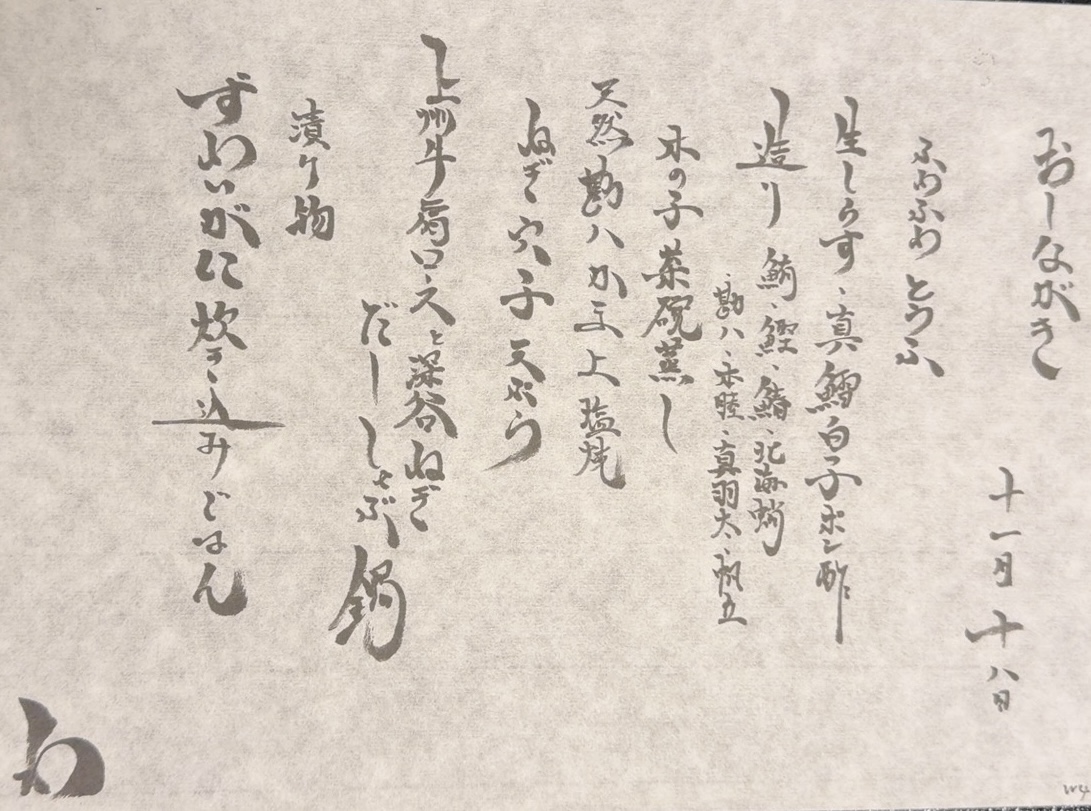 おしながき
十一月十八日
ふわふわとうふ
生しらす、真鱈白子ポン酢
造り 鮪、鰹、鰆、北海蛸
、勘八、赤睦、真羽太、帆立
木の子茶碗蒸し
天然勘八かま上塩焼
ねぎ穴子天ぷら
上州牛肩ロースと深谷ねぎ
だししゃぶ鍋
漬け物
ずわいがに炊き込みごはん
わ